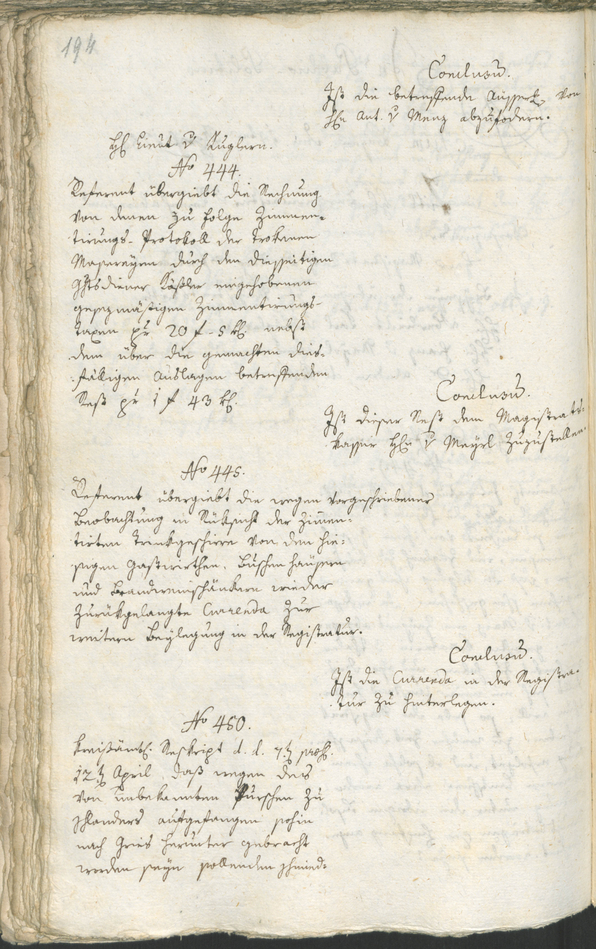 194
Conclusum.
Ist die betreffende Aussert. von
H. Ant. v Menz abzufodern.
H. Lieut v Kuglern.
No 444.
Referent übergiebt die Rechnung
von denen zu folge Zimmen-
tirungs-Protokoll der trokenen
Massereyen durch den diesseitigen
Ghtsdiener eingehobenen
gesezmäßigen Zimmentirungs-
taxen pr 20 f - 5 kr nebst
dem über die gemachten dies-
fälligen Auslagen betreffenden
Rest pr 1 f 43 kr.
Conclusum.
Ist dieser Rest dem Magistrats-
kassier H v Mayrl zuzustellen.
No 445.
Referent übergiebt die wegen vorgeschriebener
Beobachtung in Rüksicht der zimen-
tirten Trinkgeschirre von den hie-
sigen Gastwirthen, Buschenhäusern
und Brandweinschänkern wieder
zurükgelangte Currenda zur
weitern Beylegung in der Registratur.
Conclusum.
Ist die Currenda in der Registra-
tur zu hinterlegen.
No 450.
Kreisämtl. Reskript d. d. 7t präs.
12t April, daß wegen des
von unbekannten Purschen zu
Schlanders aufgefangen sohin
nach Gries herunter gebracht
worden seyn sollenden Schmied-